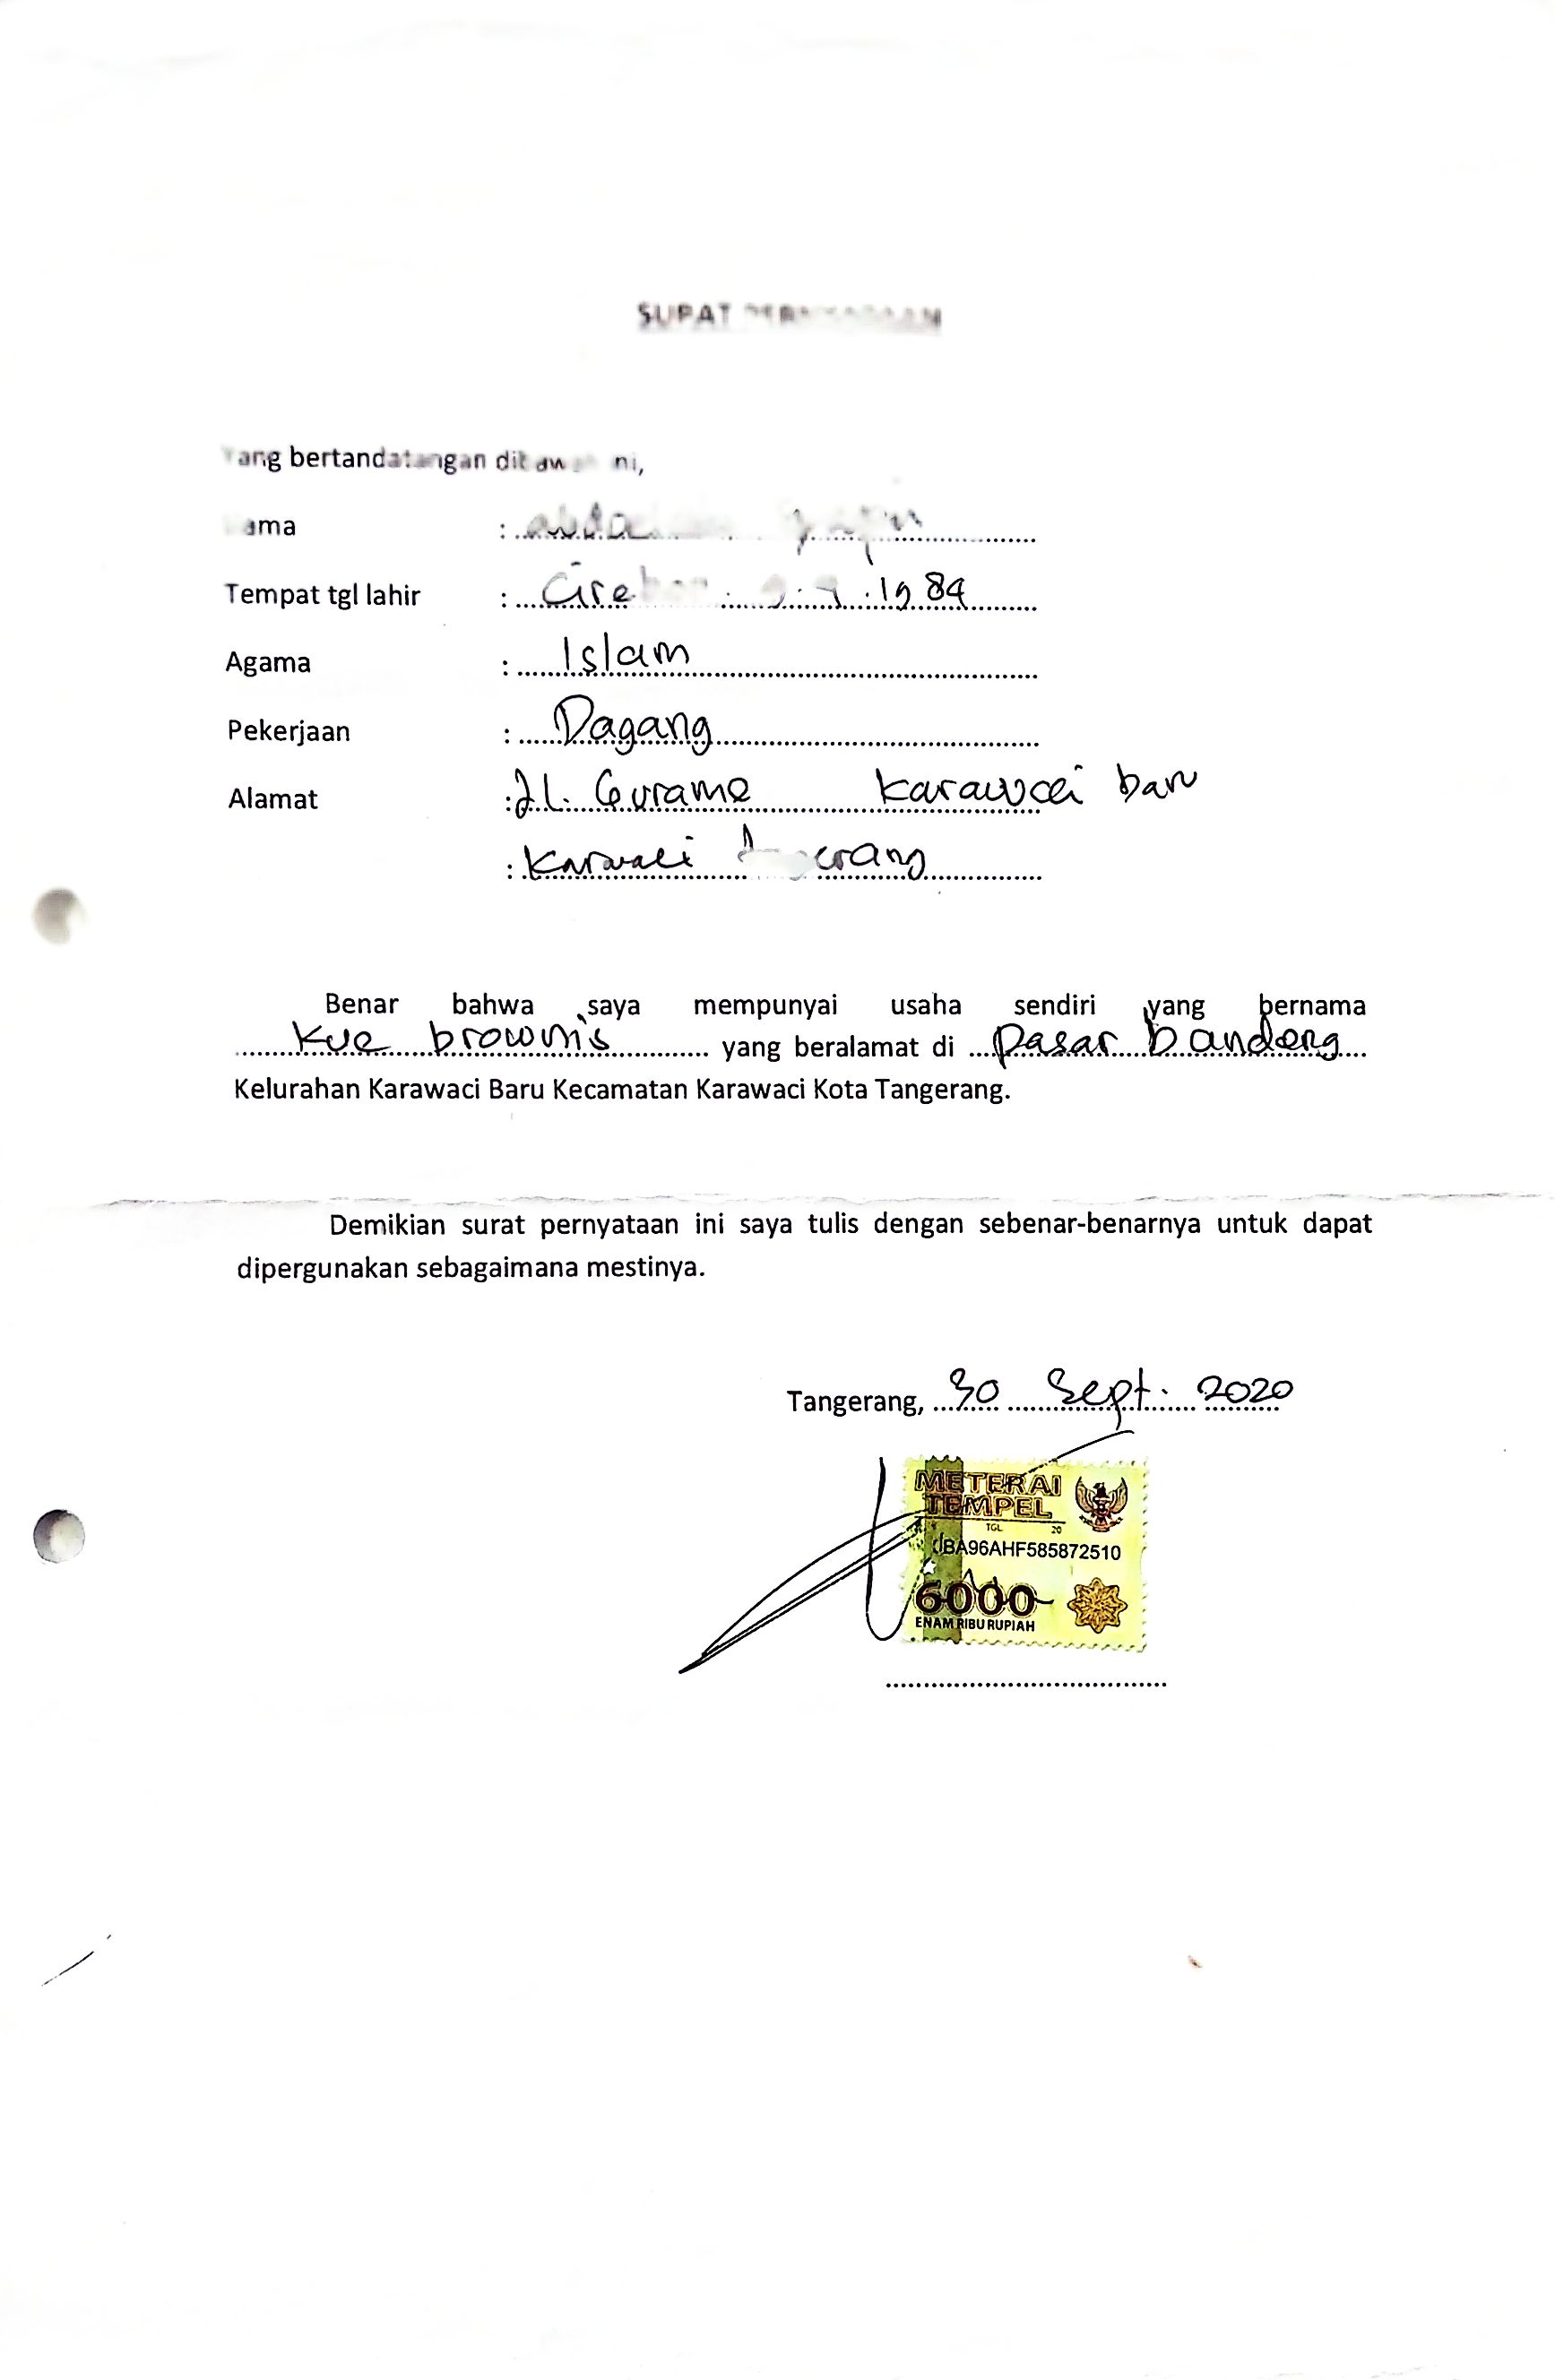 SURAT
Yang bertandatangan dibawah ini,
Nama :
Tempat tgl lahir : 1984
Agama : Islam
Pekerjaan : Dagang
Alamat : Jl. Gurame Karawaci baru
: Karawaci
Benar bahwa saya mempunyai usaha sendiri yang bernama
kue brownis yang beralamat di pasar bandeng
Kelurahan Karawaci Baru Kecamatan Karawaci Kota Tangerang.
Demikian surat pernyataan ini saya tulis dengan sebenar-benarnya untuk dapat
dipergunakan sebagaimana mestinya.
Tangerang, 30 Sept. 2020
METERAI
TEMPEL
TGL 20
BA96AHF585872510
6000
ENAM RIBU RUPIAH